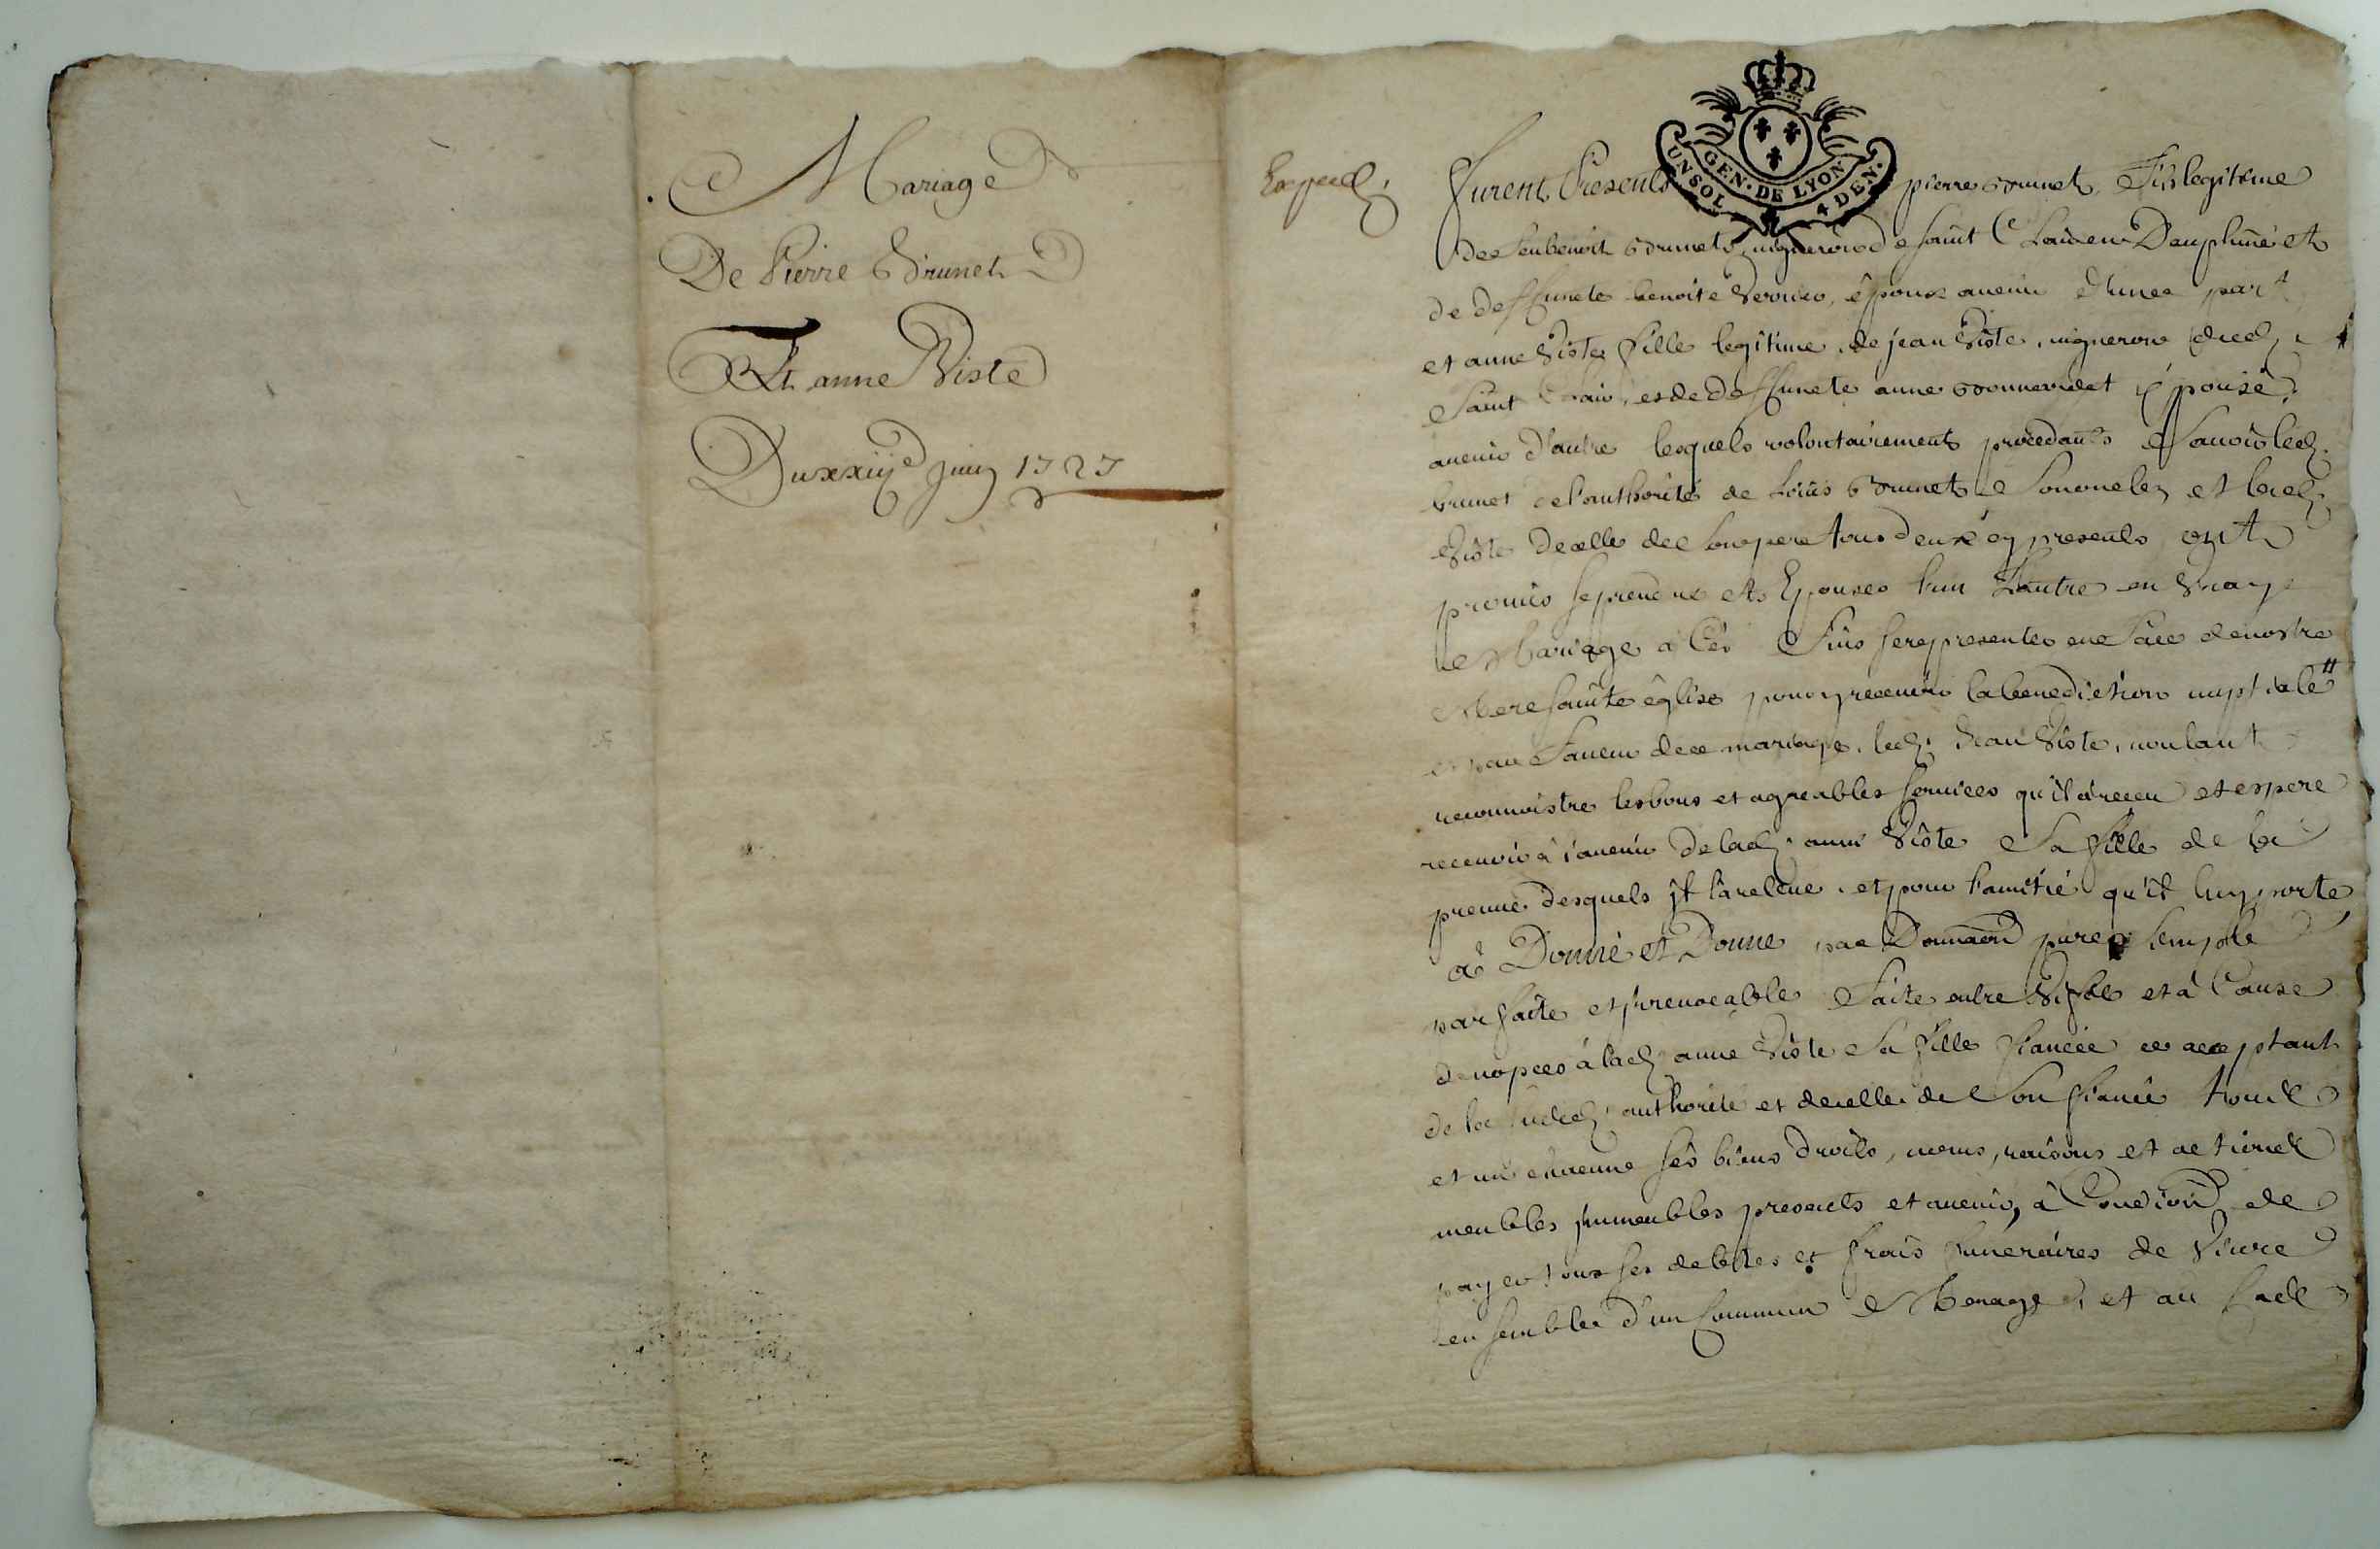 Mariage
De Pierre Brunet
Et anne Viste
Du xxiije juin 1727
Expedié
GEN. DE LYON
UN SOL 4 DEN.
Furent Presents pierre brunet, Fils legitime
de feu benoit brunet, vigneron de saint Clair en Dauphiné et
de deffuncte benoite, époux avenir d'une part
et anne Viste fille legitime de jean Viste, vigneron dud.
Saint Clair, et de deffuncte anne épouse
avenir d'autre lesquels volontairements procedants Sauoir led.
brunet de l'authorité de Louis brunet Son oncle et lad.
Viste de celle de Son pere tous deux cy presents ont
promis se prendre et Epouser l'un L'autre en vray
Mariage a Ces Fins se representer en Face de nostre
Mere sainte église pour y recevoir la benediction nuptiale
Faveur de ce mariage, led. jean Viste, voulant
reconnoistre les bons et agreables services qu'il a receu et espere
recevoir à l'avenir de lad. anne Viste Sa fille de la
preuve desquels jl l'a releve et pour l'amitié qu'il luy porte
a Donné et Donne par Donnaon pure simple
parfaite et jrrevocable Faite entre vifs et à Cause
de nopces à lad. anne Viste Sa fille fiancée ce acceptant
de la susd. authorité et de celle de Son fiancé tous
et un chacune ses biens droits, noms, raisons et actions
meubles jmmeubles presents et avenir, à Condition de
payer tous ses debtes et frais funeraires de Vivre
ensemble d'un Commun Menage, et au